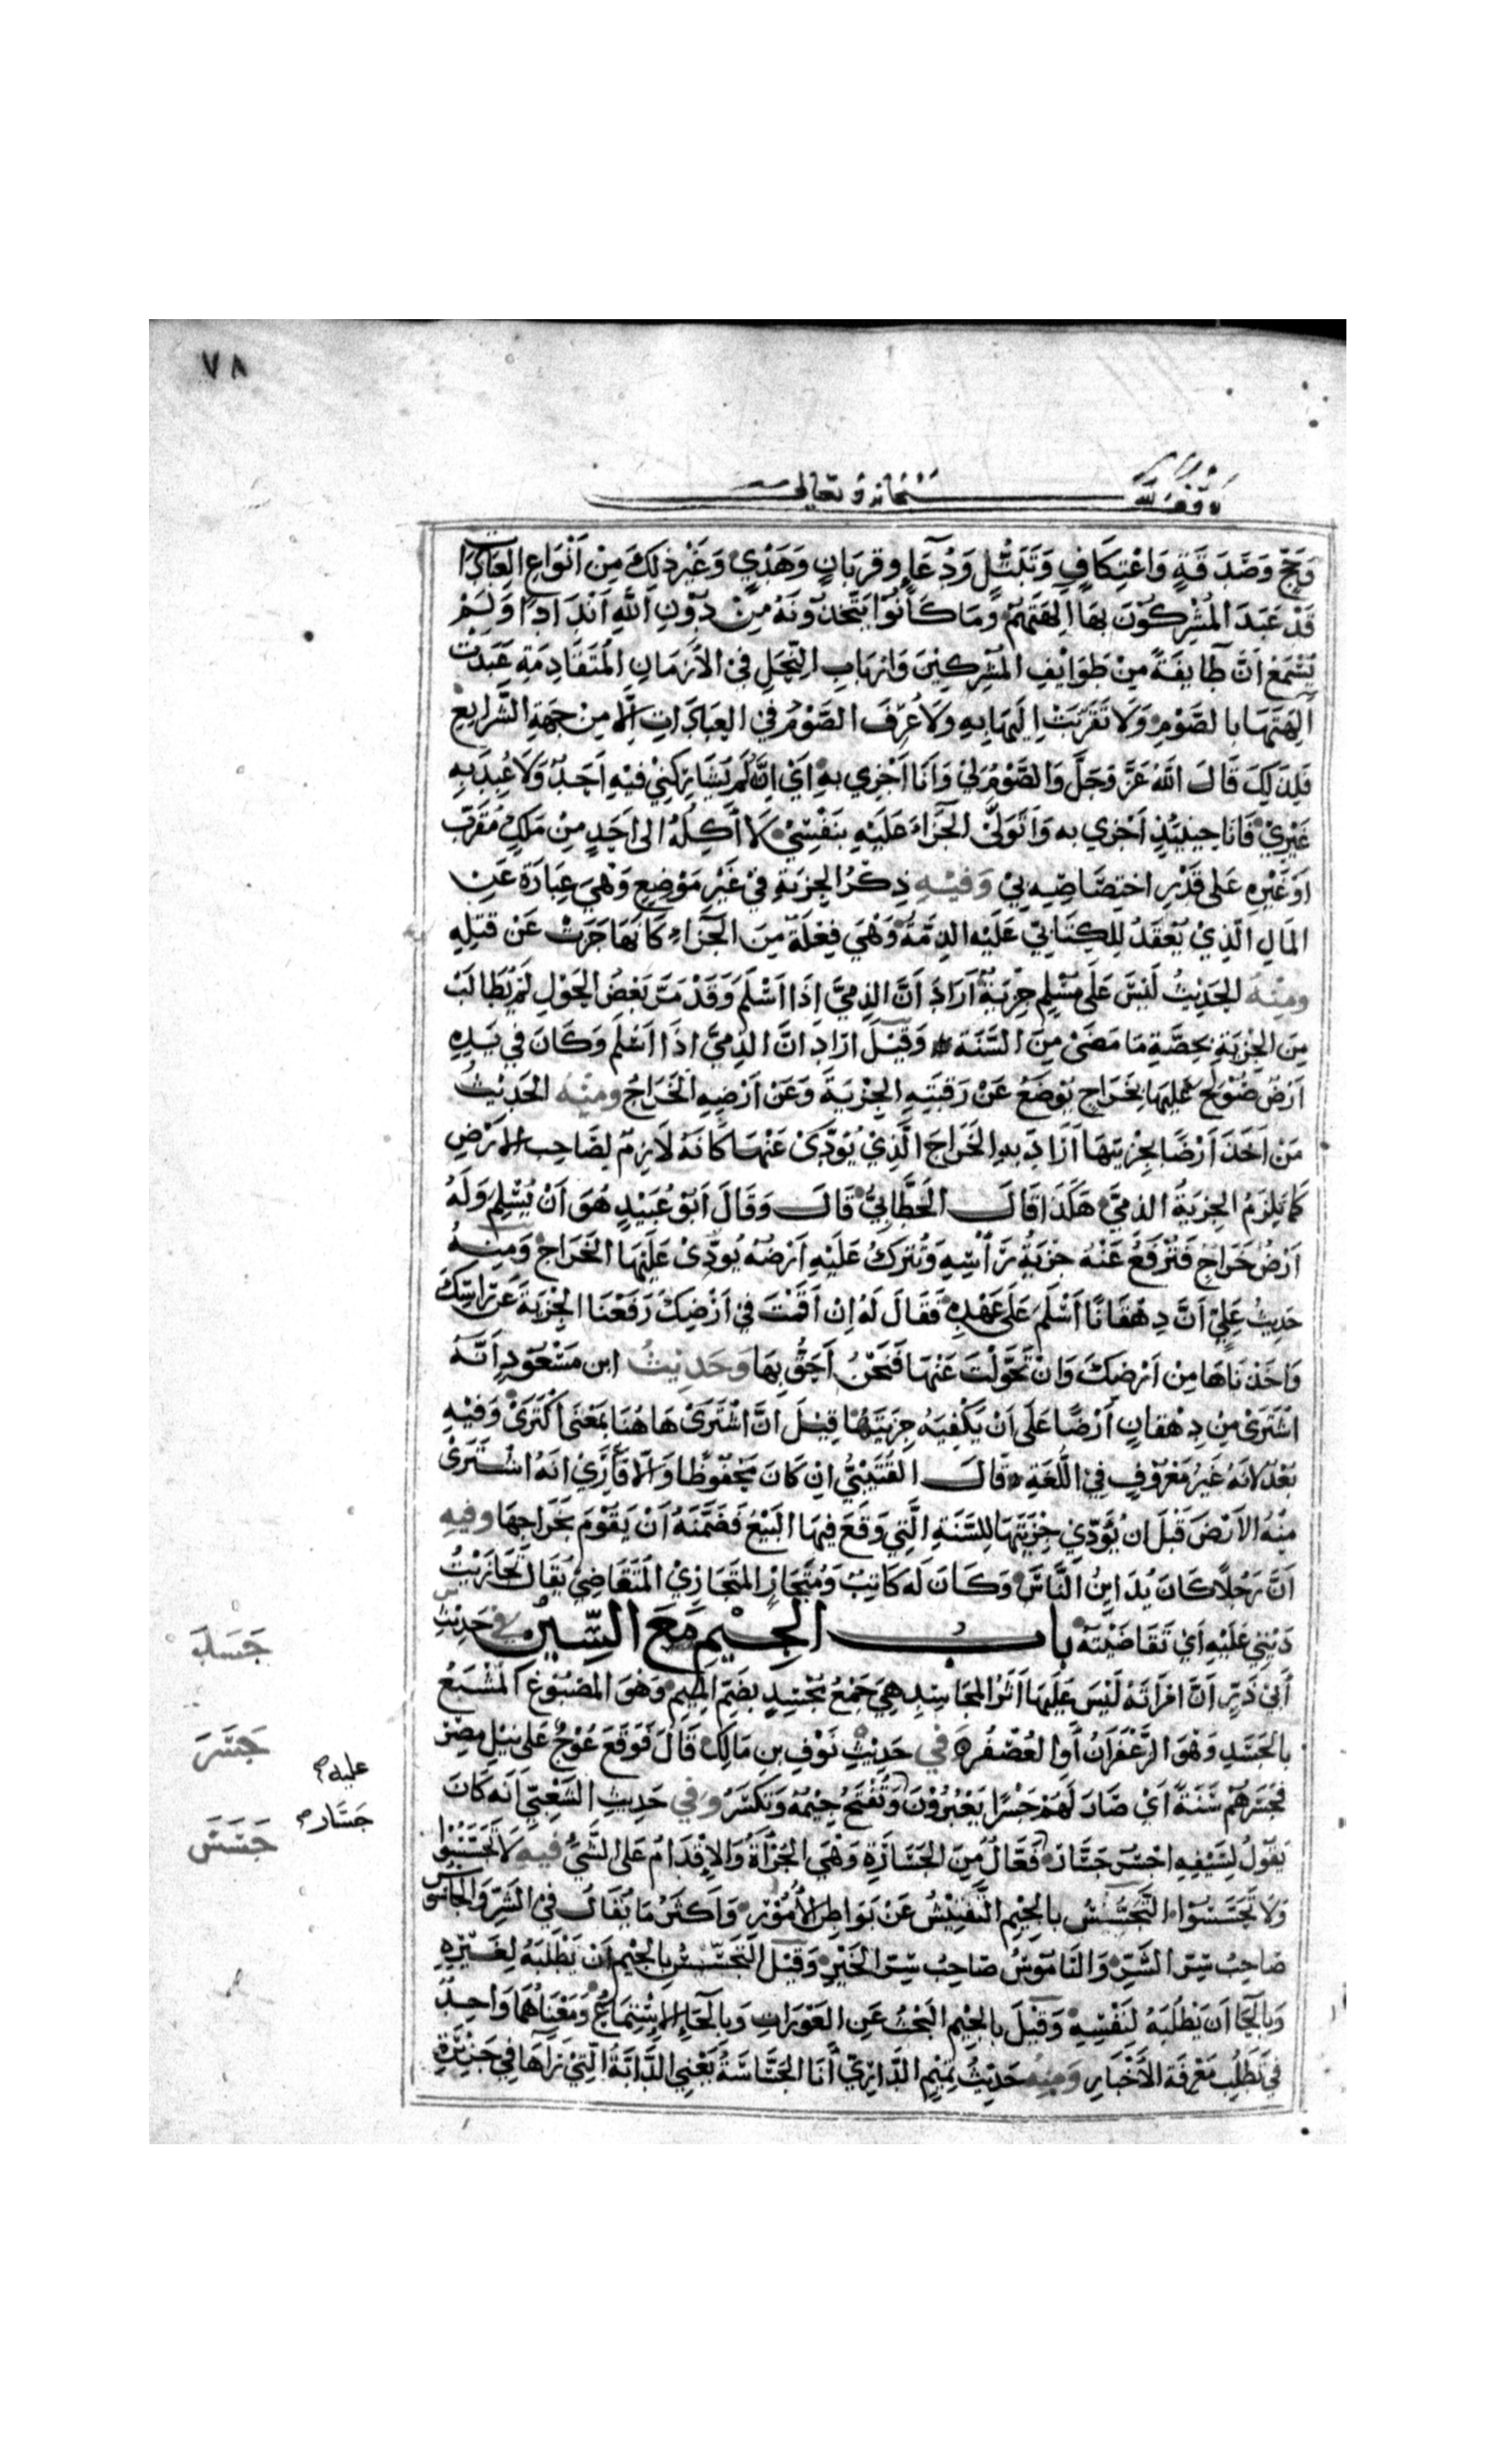 ٧٨
وقف لله سبحانه وتعالى
وَحَجّ وَصَدَقَةٍ وَاعْتِكَافٍ وَتَبَتُّلٍ وَدُعَاءٍ وقربَانٍ وَهَدْيٍ وَغَيْرِ ذلِكَ مِنْ اَنْوَاعِ العِبَادَاتِ
قَدْ عَبَدَ المُشْرِكُوْنَ بِهَا اٰلِهَتَهُمْ وَمَا كَانُوْا يَتَّخِذُوْنَهُ مِنْ دُوْنِ اللَّهِ اَنْدَادًا وَلَمْ
يُسْمَعْ اَنَّ طَايِفَةً مِنْ طَوَايِفِ المُشْرِكِيْنَ وَارْبَابِ النِّحَلِ فِي الاَزْمَانِ المُتَقَادِمَةِ عَبَدَتْ
اٰلِهَتَهَا بِالصَّوْمِ وَلَا تَقَرَّبَتْ اِلَيْهَا بِهِ وَلَا عُرِفَ الصَّوْمُ فِي العِبَادَاتِ اِلَّا مِنْ جِهَةِ الشَّرَايِعِ
فَلِذَلِكَ قَالَ اللَّهُ عَزَّ وَجَلَّ وَالصَّوْمُ لِي وَاَنَا اَجْزِي بِهِ اَيْ اِنَّهُ لَمْ يُشَارِكْنِي فِيْهِ اَحَدٌ وَلَا عُبِدَ بِهِ
غَيْرِيْ فَاَنَا حِينَيِذٍ اَجْزِي بِه وَاَتَوَلَّى الجَزَاءَ عَلَيْهِ بِنَفْسِيْ لَا اَكِلُهُ اِلى اَحَدٍ مِنْ مَلَكٍ مُقَرَّبٍ
اَوْ غَيْرِهِ عَلى قَدْرِ اخْتِصَاصِهِ بِيْ وَفِيْهِ ذِكْرُ الجِزْيَةِ فِي غَيْرِ مَوْضِعٍ وَهْيَ عِبَارَةٌ عَنِ
المَالِ الَّذِيْ يُعْقَدُ لِلكِتَابِيّ عَلَيْهِ الذِمَّةُ وَهْيَ فِعْلَةٌ مِنَ الجَزَاءِ كَاَنَّهَا جَزَتْ عَنْ قَتْلِهِ
ومِنْهُ الحَدِيْثُ لَيْسَ عَلَى مُسْلِمٍ جِزْيَةٌ اَرَادَ اَنَّ الذِمِيَّ اِذَا اَسْلَمَ وَقَدْ مَرَّ بَعْضُ الحَوْلِ لَمْ يُطَالَبْ
مِنَ الجِزْيَةِ بِحِصَّةِ مَا مَضَى مِنَ السَّنَةِ وَقِيْلَ اَرَادَ اَنَّ الذِمِيَّ اِذَا اَسْلَمَ وَكَانَ فِي يَدِهِ
اَرْضٌ صُوْلِحَ عَلَيْهَا بِخَرَاجٍ يُوْضَعُ عَنْ رَقَبَتِهِ الجِزْيَةُ وَعَنْ اَرْضِهِ الخَرَاجُ ومِنْهُ الحَدِيْثُ
مَنْ اَخَذَ اَرْضًا بِجِزْيَتِهَا اَرَادَ بِهِ الخَرَاجَ الَّذِيْ يُؤَدَّى عَنْهَا كَاَنَّهُ لَازِمٌ لِصَاحِبِ الاَرْضِ
كَمَا يَلْزَمُ الجِزْيَةُ الذِمِيَّ هٰكَذَا قَالَ الخَطَّابِيُّ قَالَ وَقَالَ اَبُوْ عُبَيْدٍ هُوَ اَنْ يُسْلِمَ وَلَهُ
اَرْضُ خَرَاجٍ فَتُرْفَعُ عَنْهُ جِزْيَةُ رَأْسِهِ وَتُتْرَكُ عَلَيْهِ اَرْضُهُ يُؤَدِّيْ عَلَيْهَا الخَرَاجَ وَمِنْهُ
حَدِيْثُ عَلِيّ اَنَّ دِهْقَانًا اَسْلَمَ عَلَى عَهْدِهِ فَقَالَ لَهُ اِنْ اَقَمْتَ فِي اَرْضِكَ رَفَعْنَا الجِزْيَةَ عَنْ رَاسِكَ
وَاَخَذْنَاهَا مِنْ اَرْضِكَ وَاِنْ تَحَوَّلْتَ عَنْهَا فَنَحْنُ اَحَقُّ بِهَا وَحَدِيْثُ ابن مَسْعُوْدٍ اَنَّهُ
اشْتَرَى مِنْ دِهْقَانٍ اَرْضًا عَلَى اَنْ يَكْفِيَهُ جِزْيَتَهَا قِيْلَ اَنَّ اشْتَرَى هَاهُنَا بِمَعْنَى اكْتَرَى وَفِيْهِ
بُعْدٌ لِاَنَّهُ غَيْرُ مَعْرُوْفٍ فِي اللُّغَةِ قَالَ القُتَيْبِيُّ اِنْ كَانَ مَحْفُوْظًا وَاِلَّا فَاَرَى اَنَّهُ اشْتَرَى
مِنْهُ الاَرْضَ قَبْلَ اَنْ يُؤَدِّيَ جِزْيَتَهَا لِلسَّنَةِ الَّتِي وَقَعَ فِيْهَا البَيْعُ فَضَمَّنَهُ اَنْ يَقُوْمَ بِخَرَاجِهَا وفِيهِ
اَنَّ رَجُلًا كَانَ يُدَايِنُ النَّاسَ وَكَانَ لَهُ كَاتِبٌ وَمُتَجَازٍ المُتَجَازِيْ المُتَقَاضِيْ يُقَالُ تَجَازَيْتُ
دَيْنِي عَلَيْهِ اَيْ تَقَاضَيْتُهُ باب الجِيْمِ مَعَ السِّيْنِ في حَدِيْثِ
أَبِي ذَرٍّ اَنَّ امْرَاَتَهُ لَيْسَ عَلَيْهَا اَثَرُ المَجَاسِدِ هِيَ جَمْعُ مُجْسَدٍ بِضَمِّ المِيْمِ وَهُوَ المَصْبُوْغُ المُشْبَعُ
جَسَدَ
بِالجَسَدِ وَهُوَ الزَّعْفَرَانُ أَوِ العُصْفُرُ في حَدِيْثِ نَوْفِ بنِ مَالِكٍ قَالَ فَوَقَعَ عُوْجٌ عَلَى نِيْلِ مِصْرَ
جَسَرَ
فَجَسَرَهُمْ سَنَةً اَيْ صَارَ لَهُمْ جِسْرًا يَعْبُرُوْنَ وَتُفْتَحُ جِيْمُهُ وَتُكْسَرُ وفي حَدِيْثِ الشَّعْبِيِّ اَنَّهُ كَانَ
عليه
يَقُوْلُ لِسَيْفِهِ اجْسُرْ جَسَّارُ فَعَّالٌ مِنَ الجَسَارَةِ وَهْيَ الجُرْأَةُ وَالاِقْدَامُ عَلَى الشَّيْءِ فيهِ لَا تَجَسَّسُوا
جَسَّار
جَسَسَ
وَلَا تَحَسَّسُوْا التَّجَسُّسُ بِالجِيْمِ التَّفْتِيْشُ عَنْ بَوَاطِنِ الاُمُوْرِ وَاَكْثَرُ مَا يُقَالُ فِي الشَّرِّ وَالجَاسُوسُ
صَاحِبُ سِرِّ الشَّرِّ وَالنَامُوْسُ صَاحِبُ سِرِّ الخَيْرِ وَقِيْلَ التَّجَسُّسُ بِالجِيْمِ اَنْ يَطْلُبَهُ لِغَيْرِهِ
وَبِالحَاءِ اَنْ يَطْلُبَهُ لِنَفْسِهِ وَقِيْلَ بِالجِيْمِ البَحْثُ عَنِ العَوْرَاتِ وَبِالحَاءِ الاِسْتِمَاعُ وَمَعْنَاهُمَا وَاحِدٌ
فِي تَطَلُّبِ مَعْرِفَةِ الاَخْبَارِ وَمِنْهُ حَدِيْثُ تَمِيْمٍ الدَّارِيِّ اَنَا الجَسَّاسَةُ يَعْنِي الدَّابَّةُ الَّتِيْ رَاٰهَا فِي جَزِيْرَةِ